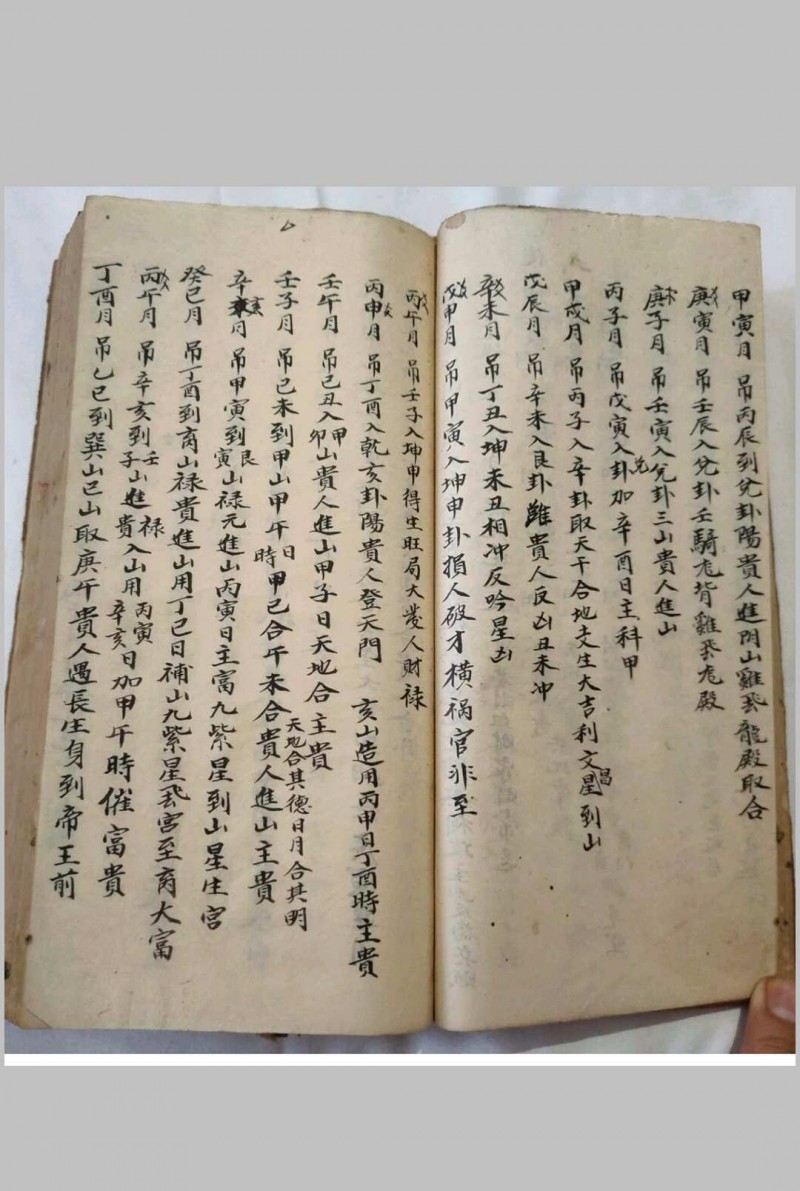 甲寅月 吊丙辰到兌卦陽貴人進阴山雞飛龍殿取合
庚寅月 吊壬辰入兌卦壬騎龙背雞飛龙殿
庚子月 吊壬寅入兌卦三山貴人進山
丙子月 吊戊寅入兌卦加辛酉日主科甲
甲戌月 吊丙子入辛卦取天干合地支生大吉利文昌星到山
戊辰月 吊辛未入艮卦雖貴人反凶丑未冲
辛未月 吊丁丑入坤未丑相冲反吟星凶
戊申月 吊甲寅入坤申卦損人破才橫祸官非至
丙午月 吊壬子入坤申得生旺局大发人財禄
丙申月 吊丁酉入乾亥卦陽貴人登天門 亥山造用丙甲日丁酉時主貴
壬午月 吊己丑入甲卯山貴人進山甲子日天地合主貴
壬子月 吊己未到甲山甲午日時甲己合午未合貴人進山主貴 天地合其德日月合其明
辛亥月 吊甲寅到艮寅山禄元進山丙寅日主富九紫星到山星生宫
癸巳月 吊丁酉到离山禄貴進山用丁巳日補山九紫星飛宫至离大富
丙午月 吊辛亥到壬子山進禄貴入山用丙寅辛亥日加甲午時催富貴
丁酉月 吊乙巳到巽山巳山取庚午貴人遇長生身到帝王前